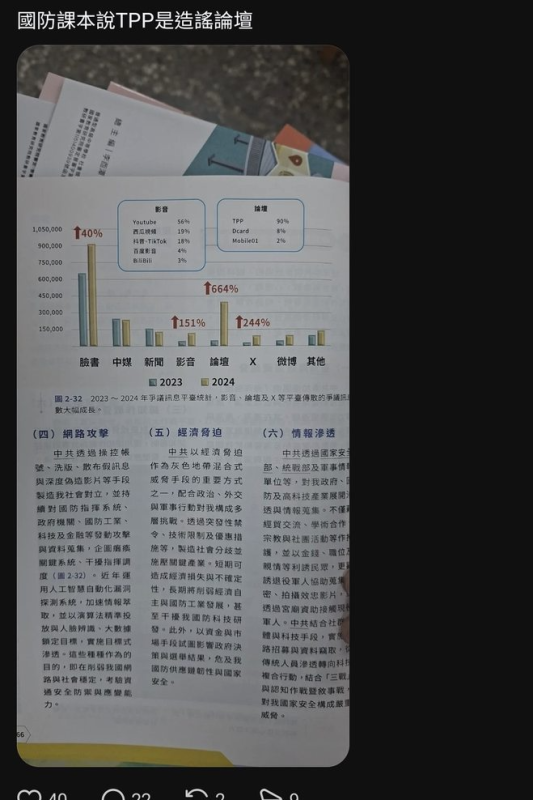 國防課本說TPP是造謠論壇
影音
Youtube 56%
西瓜視頻 19%
抖音-TikTok 18%
百度影音 4%
BiliBili 3%
論壇
TPP 90%
Dcard 8%
Mobile01 2%
1,050,000
900,000
750,000
600,000
450,000
300,000
150,000
40%
151%
664%
244%
臉書 中媒 新聞 影音 論壇 X 微博 其他
2023 2024
圖2-32 2023～2024年爭議訊息平臺統計，影音、論壇及X等平臺傳散的爭議訊
數大幅成長。
（四）網路攻擊
中共透過操控帳
號、洗版、散布假訊息
與深度偽造影片等手段
製造我社會對立，並持
續對國防指揮系統、
政府機關、國防工業、
科技及金融等發動攻擊
與資料蒐集，企圖癱瘓
關鍵系統、干擾指揮調
度（圖2-32）。近年運
用人工智慧自動化漏洞
探測系統，加速情報萃
取，並以演算法精準投
放與人臉辨識、大數據
鎖定目標，實施目標式
滲透。這些種種作為的
目的，即在削弱我國網
路與社會穩定，考驗資
通安全防禦與應變能
力。
（五）經濟脅迫
中共以經濟脅迫
作為灰色地帶混合式
威脅手段的重要方式
之一，配合政治、外交
與軍事行動對我構成多
層挑戰。透過突發性禁
令、技術限制及優惠措
施等，製造社會分歧並
施壓關鍵產業。短期可
造成經濟損失與不確定
性，長期將削弱經濟自
主與國防工業發展，甚
至干擾我國防科技研
發。此外，以資金與市
場手段試圖影響政府決
策與選舉結果，危及我
國防供應鏈韌性與國家
安全。
（六）情報滲透
中共透過國家安
部、統戰部及軍事情
單位等，對我政府、國
防及高科技產業展開
透與情報蒐集。不僅
經貿交流、學術合作
宗教與社團活動等作
護，並以金錢、職位
親情等利誘民眾，更
誘退役軍人協助蒐
密、拍攝效忠影片，
透過宮廟資助接觸現
軍人。中共結合社
體與科技手段，實
路招募與資料竊取，
傳統人員滲透轉向科
複合行動，結合「三戰
與認知作戰暨敘事戰
對我國家安全構成嚴
威脅。
66
40 22 2 9